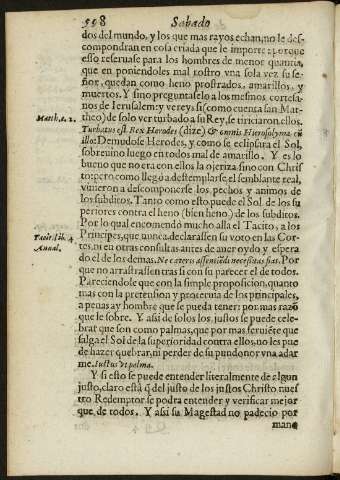 558 Sabado
dos del mundo, y los que mas rayos echan, no le des-
compondran en cosa criada que le importe: porque
esso reseruase para los hombres de menor quantia,
que en poniendoles mal rostro vna sola vez su se-
ñor, quedan como heno postrados, amarillos, y
muertos. Y sino preguntaselo a los mesmos cortesa-
nos de Ierusalem: y vereys si (como cuenta san Mat-
Matth. c. 2.
theo) de solo ver turbado a su Rey, se tiriciaron ellos.
Turbatus est Rex Herodes (dize) & omnis Hierosolyma cũ
illo: Demudose Herodes, y como se eclipsara el Sol,
sobreuino luego en todos mal de amarillo. Y es lo
bueno que no era con ellos la ojeriza sino con Chris
to: pero como llegò a destemplarse el semblante real,
vinieron a descomponerse los pechos y animos de
los subditos. Tanto como esto, puede el Sol de los su
periores contra el heno (bien heno) de los subditos.
Por lo qual encomendó mucho alla el Tacito, a los
Tacit. lib. 4.
Principes, que nunca declarassen su voto en las Cor-
Annal.
tes, ni en otras consultas antes de auer oydo y espera
do el de los demas. Ne cæteris assentiẽdi necessitas fias. Por
que no arrastrassen tras si con su parecer el de todos.
Pareciendole que con la simple proposicion, quanto
mas con la pretension y proteruia de los principales,
a penas ay hombre que se pueda tener: por mas razõ
que le sobre. Y assi de solos los justos se puede cele-
brar que son como palmas, que por mas seruiẽte que
salga el Sol de la superioridad contra ellos, no les pue
de hazer quebrar, ni perder de su pundonor vna adar
me. Iustus vt palma.
Y si esto se puede entender literalmente de algun
justo, claro està q̃ del justo de los justos Christo nues
tro Redemptor se podra entender y verificar mejor
que de todos. Y assi su Magestad no padecio por
mano